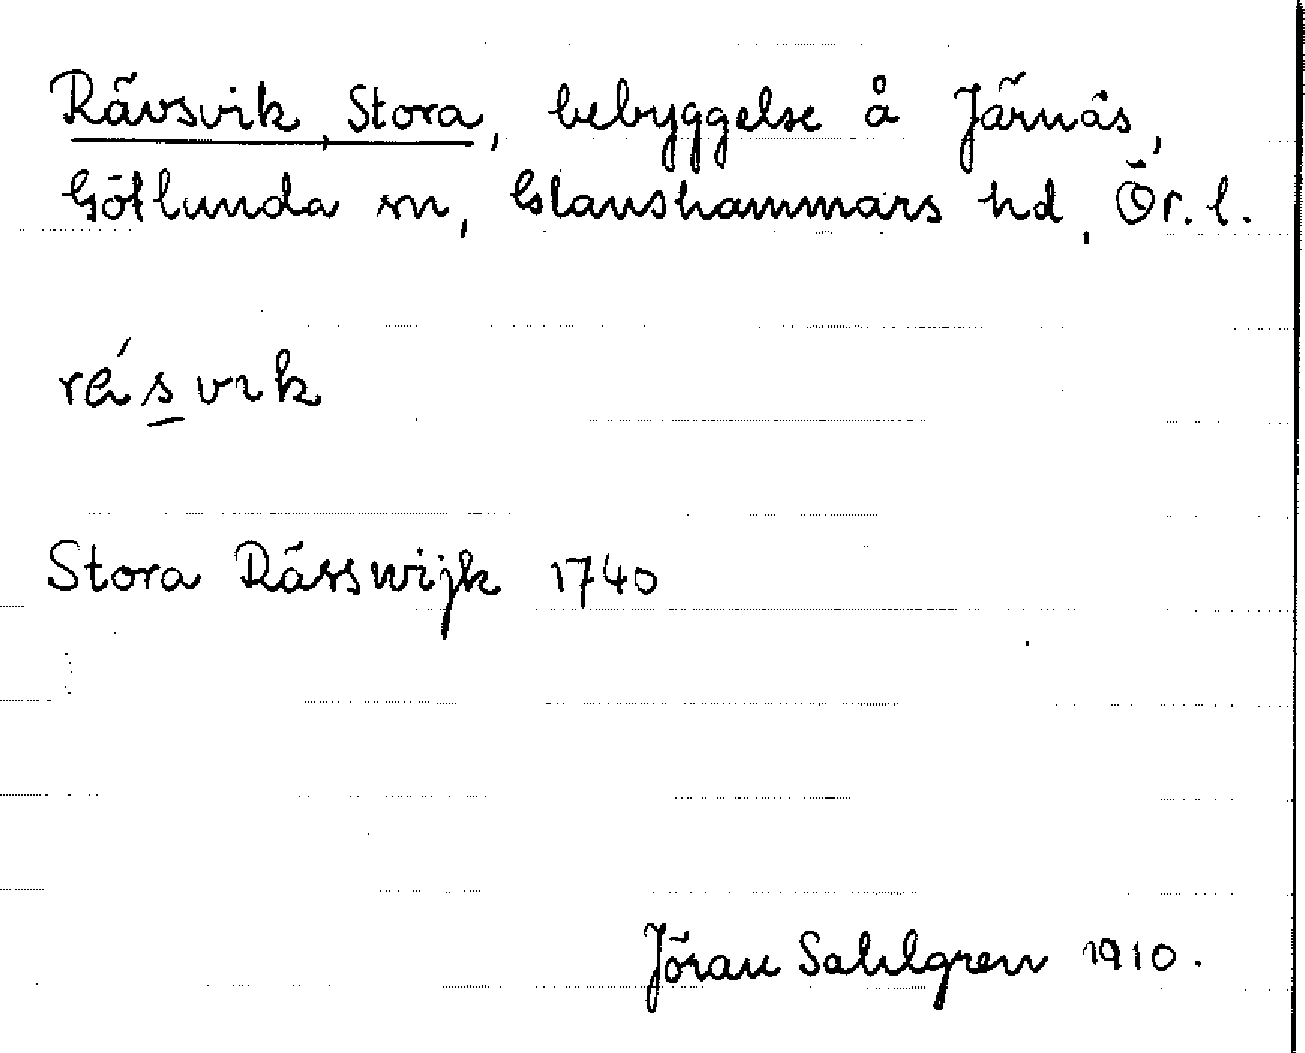 Rävsvik, Stora, bebyggelse å Järnäs,
Götlunda sn, Glanshammars hd, Ör. l.
rä́svik
Stora Räfswijk 1740
Jöran Sahlgren 1910.